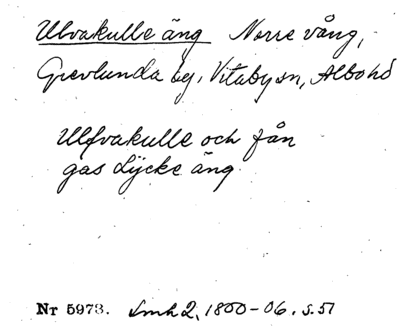 Ulvakulle äng Norre vång,
Grevlunda by, Vitaby sn, Albo hd
Ulfvakulle och fån
gas Lÿcke äng
Nr 5973. Lmh 2, 1800-06, s. 51